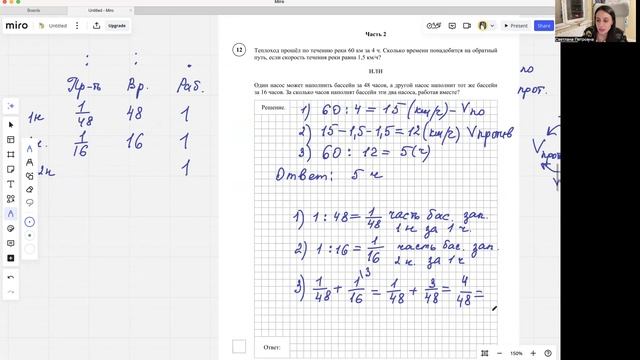 Miro
Boards
Untitled - Miro
miro
Untitled
Upgrade
Часть 2
12
Теплоход прошёл по течению реки 60 км за 4 ч. Сколько времени понадобится на обратный
путь, если скорость течения реки равна 1,5 км/ч?
ИЛИ
Один насос может наполнить бассейн за 48 часов, а другой насос наполнит тот же бассейн
за 16 часов. За сколько часов наполнят бассейн эти два насоса, работая вместе?
Решение.
1) 60 : 4 = 15 (км/ч) - V по
2) 15 - 1,5 - 1,5 = 12 (км/ч) V против
3) 60 : 12 = 5 (ч)
Ответ: 5 ч
1) 1 : 48 = 1/48 часть бас. зап.
1 н за 1 ч.
2) 1 : 16 = 1/16 часть бас. зап.
2 н. за 1 ч
3) 1/48 + 1/16 \3 = 1/48 + 3/48 = 4/48 =
Ответ:
Пр-ть Вр. Раб.
1н 1/48 48 1
1/16 16 1
2н 1
по
прот.
V
150%
Светлана Петровна